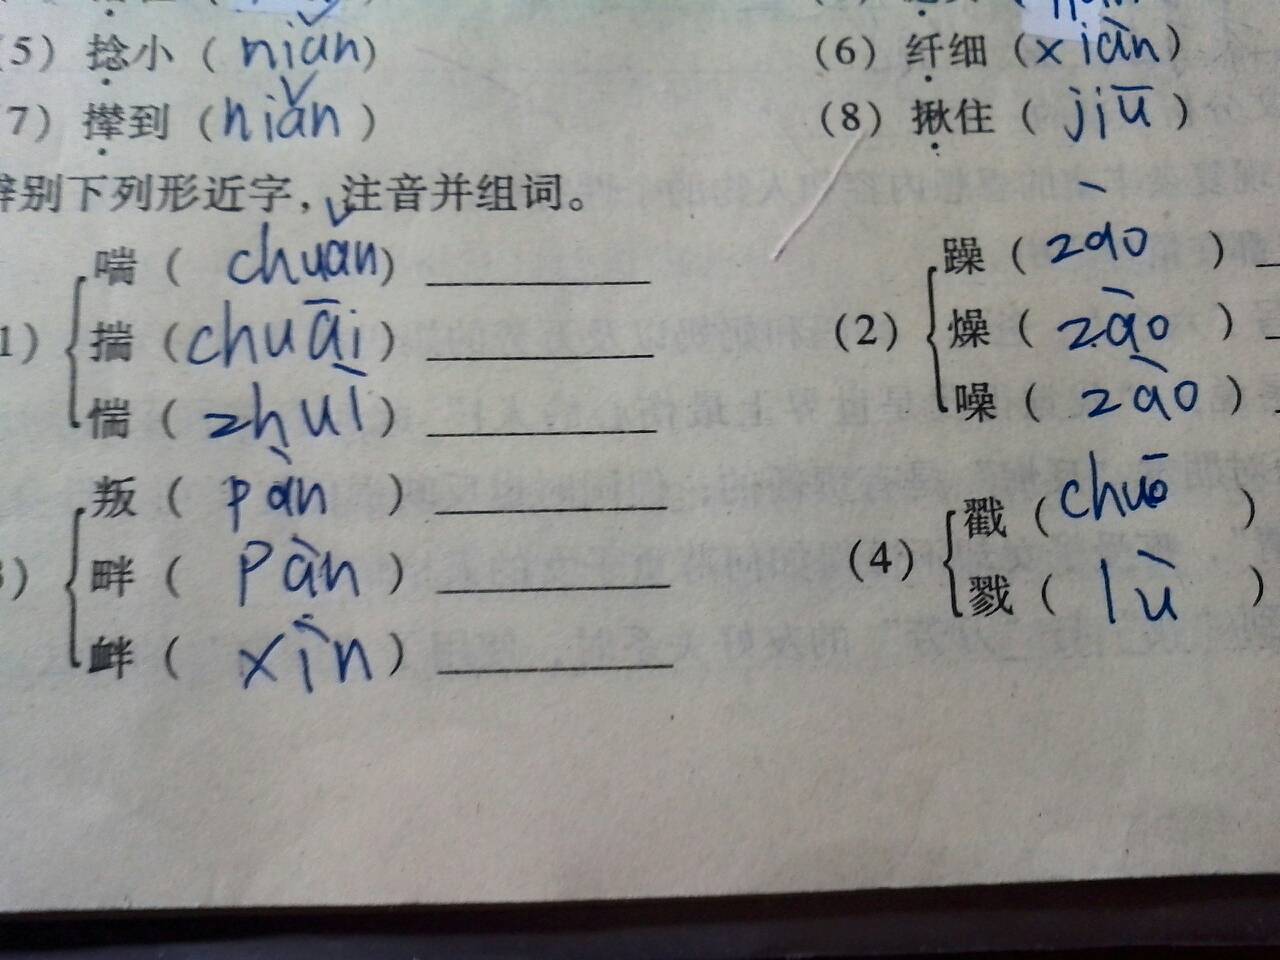 (5) 捻小 (niǎn) (6) 纤细 (xiàn)
(7) 撵到 (niǎn) (8) 揪住 (jiū)
辨别下列形近字，注音并组词。
喘 (chuǎn) 躁 (zào)
1) 揣 (chuāi) (2) 燥 (zào)
惴 (zhuì) 噪 (zào)
叛 (pàn) 戳 (chuō)
3) 畔 (pàn) (4) 戮 (lù)
衅 (xìn)